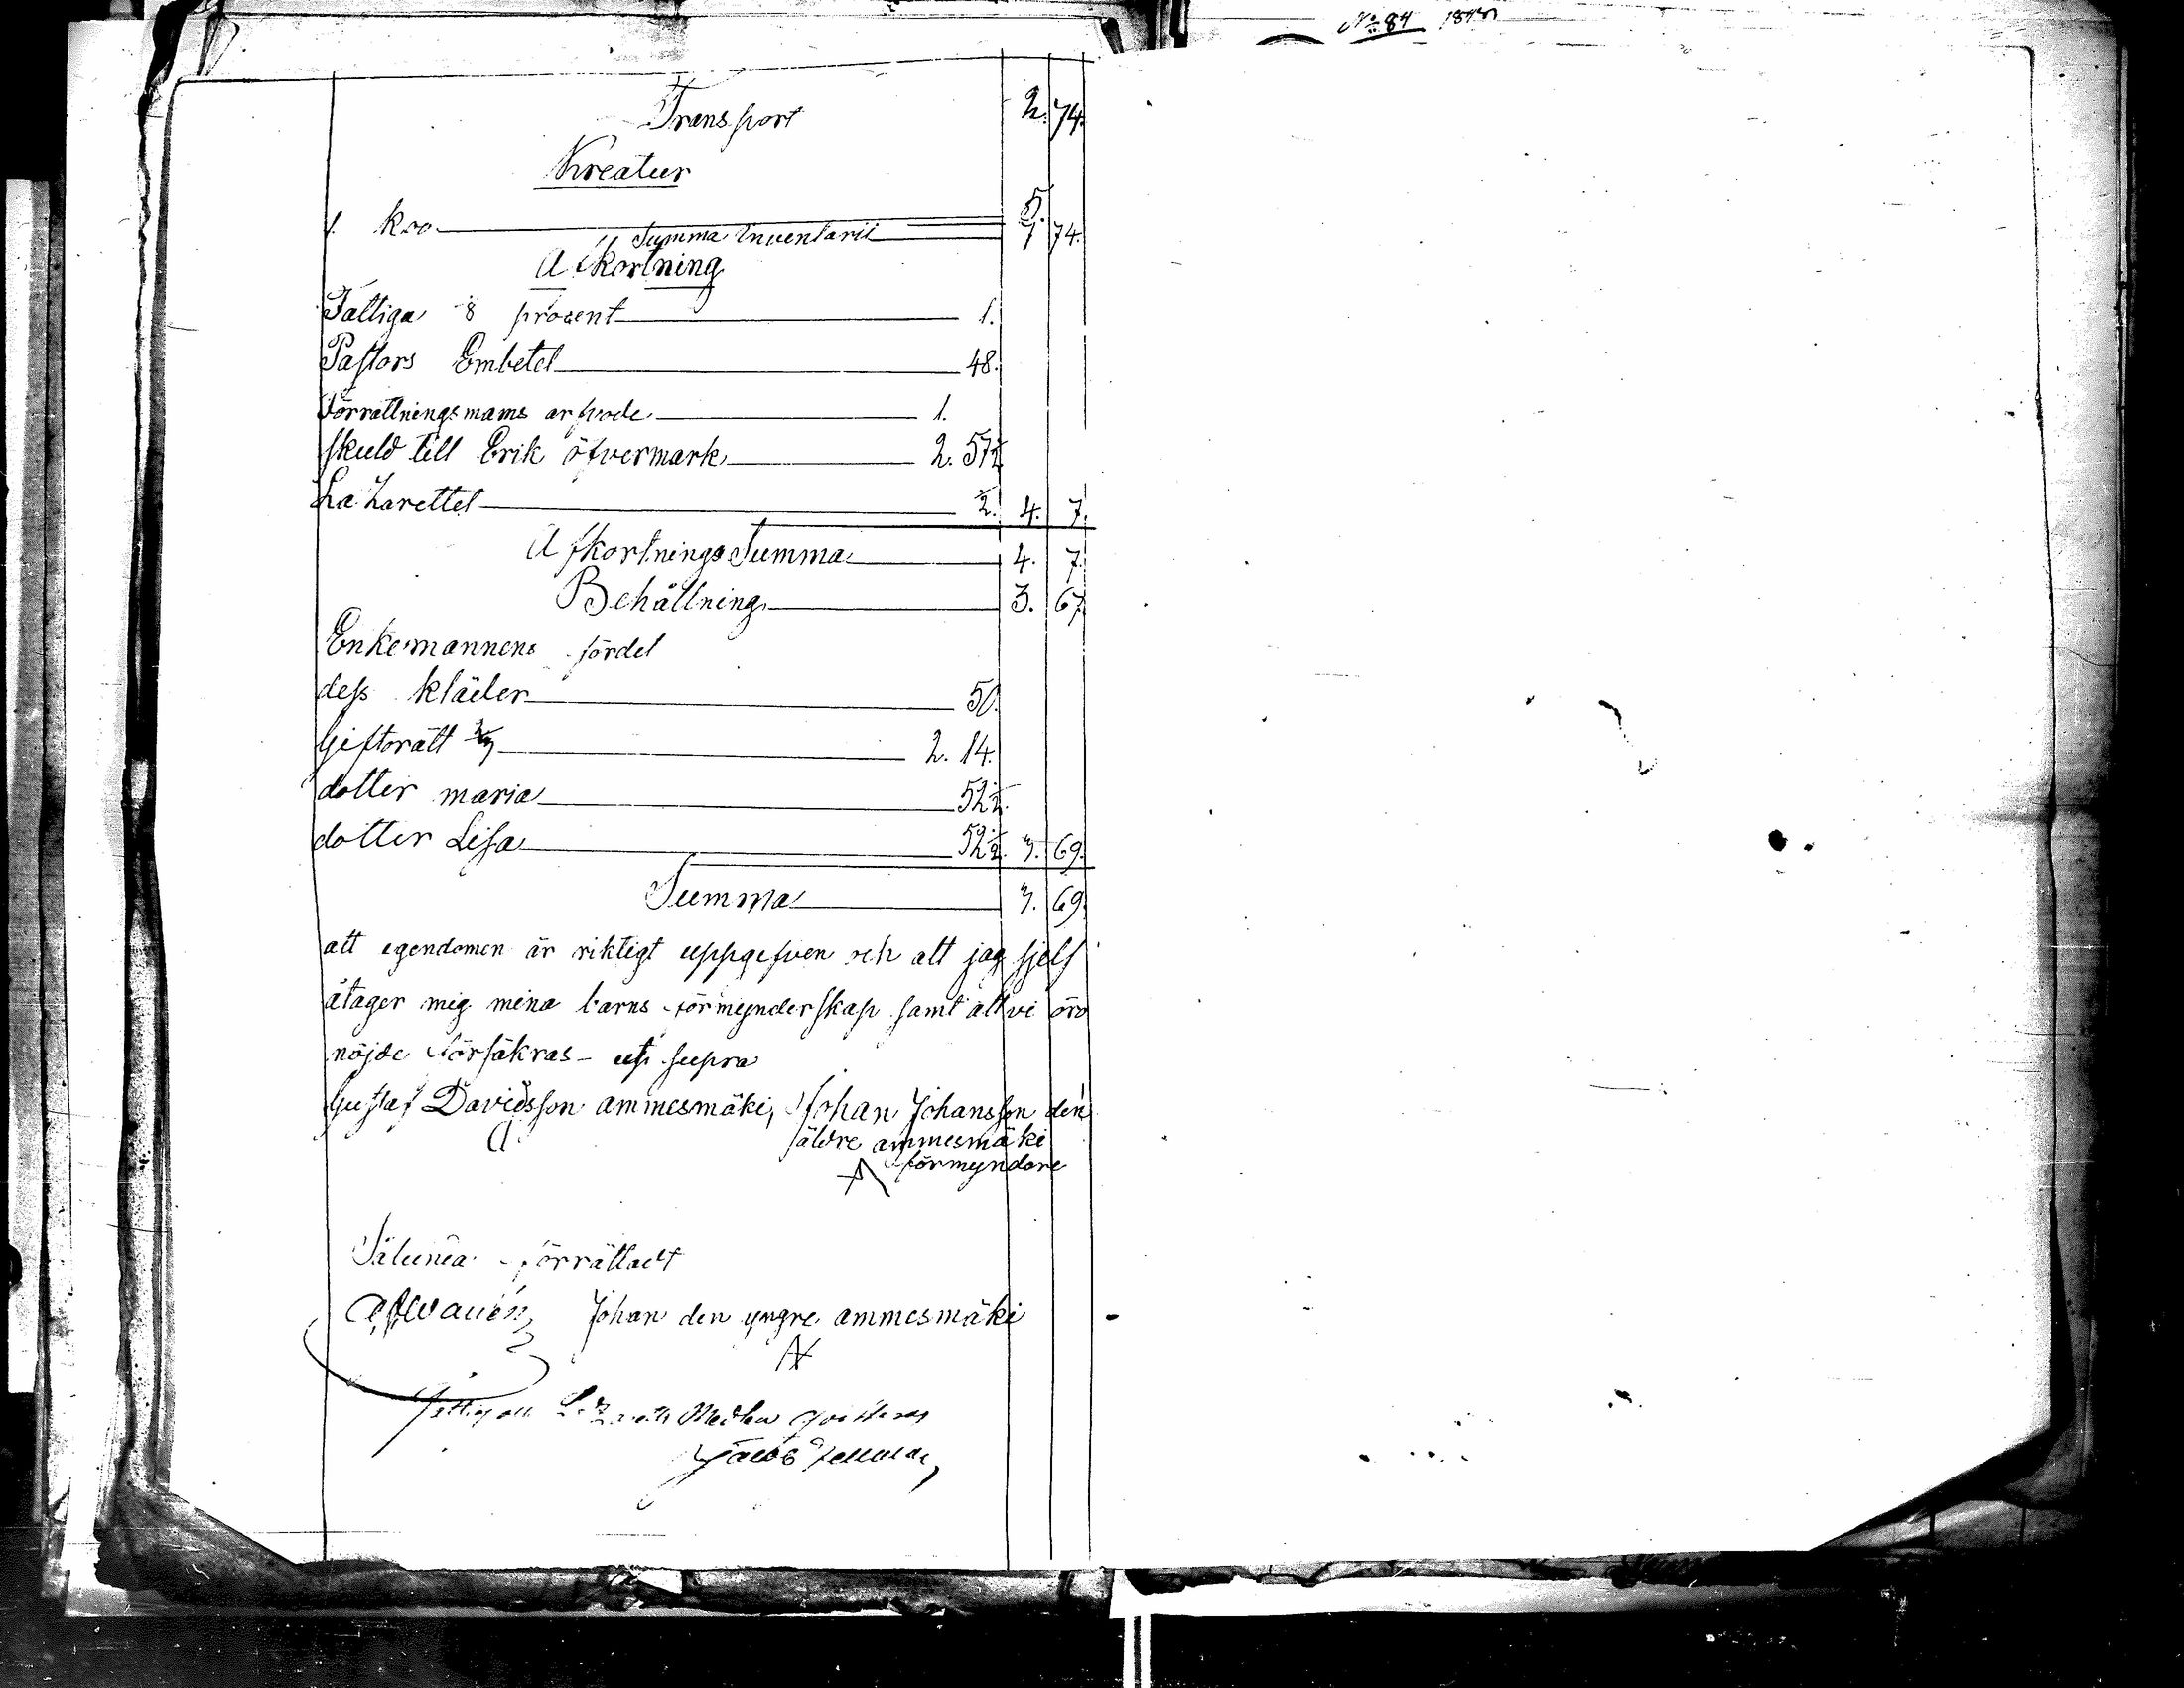 No 84
Transport 2. 74.
Kreatur
1 ko 5.
Summa Inventarii 7 74.
Afkortning
Fattiga 8 procent 1.
Pastors Embetet 48.
Förrattningsmans arfvode 1.
skuld till Erik öfvermark 2. 57½
La Zarettet ½. 4. 7.
Afkortnings Summa 4. 7.
Behållning 3. 67
Enkemannens fördel
dess kläder 50.
Giftorätt 2. 14.
dotter maria 52½.
dotter Lisa 52½. 3. 69.
Summa 3. 69.
att egendomen är riktigt uppgifven och att jag sjelf
åtager mig mina barns förmynderskap samt att vi äro
nöjde försäkras ut supra
Gustaf Davidsson ammesmäki, Johan Johansson den
äldre ammesmäki
förmyndare
Sålunda förrättadt
Johan den yngre ammesmäki
Jacob